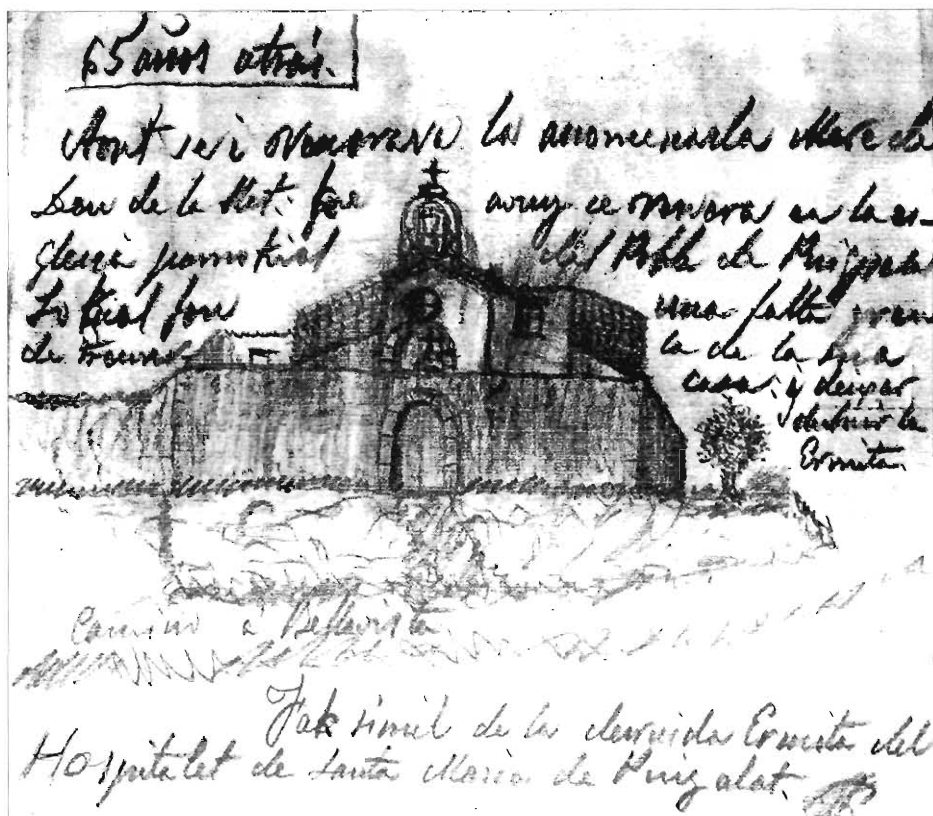 65 años atrás.
Aont se i venerava la anomenada Mare de
Deu de la Llet. que avuy se venera en la es-
glesia parrokial del Pobla de Puig
Lo kual fou una falta gran
de la de la sua
casa: y deixar
la
Ermita.
Camino a Bellavista
Fak simil de la derruida Ermita del
Hospitalet de Santa Maria de Puig alat.